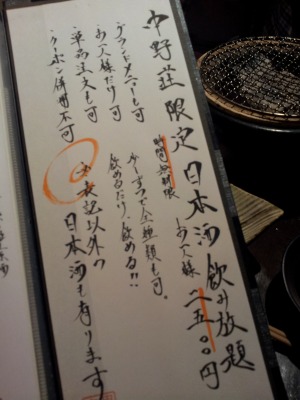 中野荘限定日本酒飲み放題
お一人様 二五〇〇円
時間無制限
少しずつで全種類も可。
飲めるだけ、飲める!!
・グランドメニューも可
・お一人様だけ可
・単品注文も可
・クーポン併用不可
表記以外の
日本酒も有ります